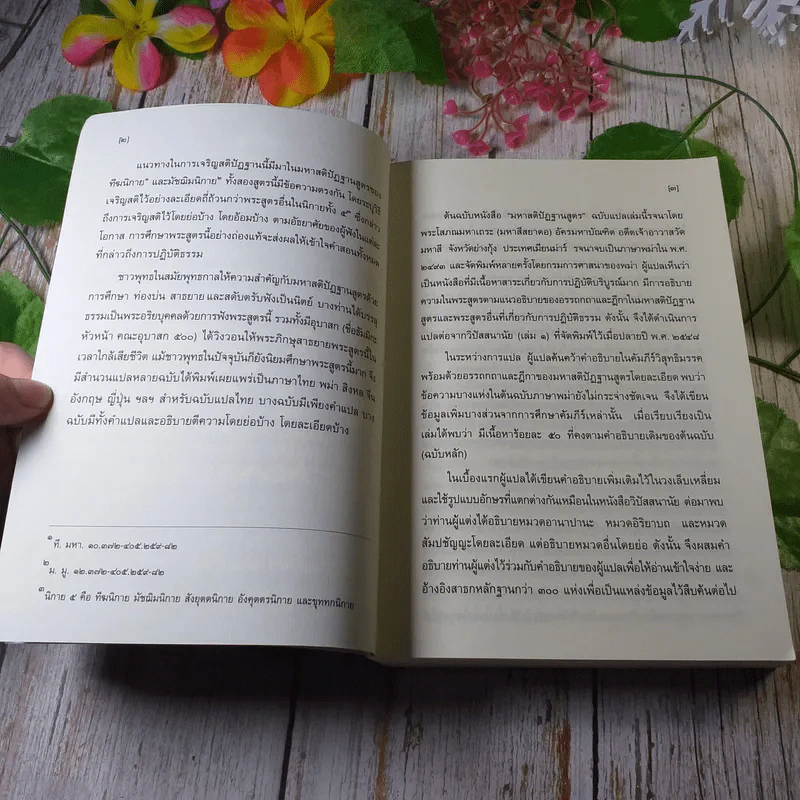 [๒]
แนวทางในการเจริญสติปัฏฐานนี้มีมาในมหาสติปัฏฐานสูตรของ
ทีฆนิกาย๑ และมัชฌิมนิกาย๒ ทั้งสองสูตรนี้มีข้อความตรงกัน โดยระบุวิธี
เจริญสติไว้อย่างละเอียดถี่ถ้วนกว่าพระสูตรอื่นในนิกายทั้ง ๕๓ ซึ่งกล่าว
ถึงการเจริญสติไว้โดยย่อบ้าง โดยอ้อมบ้าง ตามอัธยาศัยของผู้ฟังในแต่ละ
โอกาส การศึกษาพระสูตรนี้อย่างถ่องแท้จะส่งผลให้เข้าใจคำสอนทั้งหมด
ที่กล่าวถึงการปฏิบัติธรรม
ชาวพุทธในสมัยพุทธกาลให้ความสำคัญกับมหาสติปัฏฐานสูตรด้วย
การศึกษา ท่องบ่น สาธยาย และสดับตรับฟังเป็นนิตย์ บางท่านได้บรรลุ
ธรรมเป็นพระอริยบุคคลด้วยการฟังพระสูตรนี้ รวมทั้งมีอุบาสก (ชื่อธัมมิกะ
หัวหน้า คณะอุบาสก ๕๐๐) ได้วิงวอนให้พระภิกษุสาธยายพระสูตรนี้ใน
เวลาใกล้เสียชีวิต แม้ชาวพุทธในปัจจุบันก็ยังนิยมศึกษาพระสูตรนี้มาก จึง
มีสำนวนแปลหลายฉบับได้พิมพ์เผยแพร่เป็นภาษาไทย พม่า สิงหล จีน
อังกฤษ ญี่ปุ่น ฯลฯ สำหรับฉบับแปลไทย บางฉบับมีเพียงคำแปล บาง
ฉบับมีทั้งคำแปลและอธิบายตีความโดยย่อบ้าง โดยละเอียดบ้าง
๑ที. มหา. ๑๐.๓๗๒-๔๐๕.๒๕๙-๘๒
๒ม. มู. ๑๒.๓๗๒-๔๐๕.๒๕๙-๘๒
๓นิกาย ๕ คือ ทีฆนิกาย มัชฌิมนิกาย สังยุตตนิกาย อังคุตตรนิกาย และขุททกนิกาย
[๓]
ต้นฉบับหนังสือ "มหาสติปัฏฐานสูตร" ฉบับแปลเล่มนี้รจนาโดย
พระโสภณมหาเถระ (มหาสีสยาดอ) อัครมหาบัณฑิต อดีตเจ้าอาวาสวัด
มหาสี จังหวัดย่างกุ้ง ประเทศเมียนม่าร์ รจนาจบเป็นภาษาพม่าใน พ.ศ.
๒๔๙๓ และจัดพิมพ์หลายครั้งโดยกรมการศาสนาของพม่า ผู้แปลเห็นว่า
เป็นหนังสือที่มีเนื้อหาสาระเกี่ยวกับการปฏิบัติบริบูรณ์มาก มีการอธิบาย
ความในพระสูตรตามแนวอธิบายของอรรถกถาและฎีกาในมหาสติปัฏฐาน
สูตรและพระสูตรอื่นที่เกี่ยวกับการปฏิบัติธรรม ดังนั้น จึงได้ดำเนินการ
แปลต่อจากวิปัสสนานัย (เล่ม ๑) ที่จัดพิมพ์ไว้เมื่อปลายปี พ.ศ. ๒๕๔๘
ในระหว่างการแปล ผู้แปลค้นคว้าคำอธิบายในคัมภีร์วิสุทธิมรรค
พร้อมด้วยอรรถกถาและฎีกาของมหาสติปัฏฐานสูตรโดยละเอียด พบว่า
ข้อความบางแห่งในต้นฉบับภาษาพม่ายังไม่กระจ่างชัดเจน จึงได้เขียน
ข้อมูลเพิ่มบางส่วนจากการศึกษาคัมภีร์เหล่านั้น เมื่อเรียบเรียงเป็น
เล่มได้พบว่า มีเนื้อหาร้อยละ ๕๐ ที่คงตามคำอธิบายเดิมของต้นฉบับ
(ฉบับหลัก)
ในเบื้องแรกผู้แปลได้เขียนคำอธิบายเพิ่มเติมไว้ในวงเล็บเหลี่ยม
และใช้รูปแบบอักษรที่แตกต่างกันเหมือนในหนังสือวิปัสสนานัย ต่อมาพบ
ว่าท่านผู้แต่งได้อธิบายหมวดอานาปานะ หมวดอิริยาบถ และหมวด
สัมปชัญญะโดยละเอียด แต่อธิบายหมวดอื่นโดยย่อ ดังนั้น จึงผสมคำ
อธิบายท่านผู้แต่งไว้ร่วมกับคำอธิบายของผู้แปลเพื่อให้อ่านเข้าใจง่าย และ
อ้างอิงสาธกหลักฐานกว่า ๓๐๐ แห่งเพื่อเป็นแหล่งข้อมูลไว้สืบค้นต่อไป